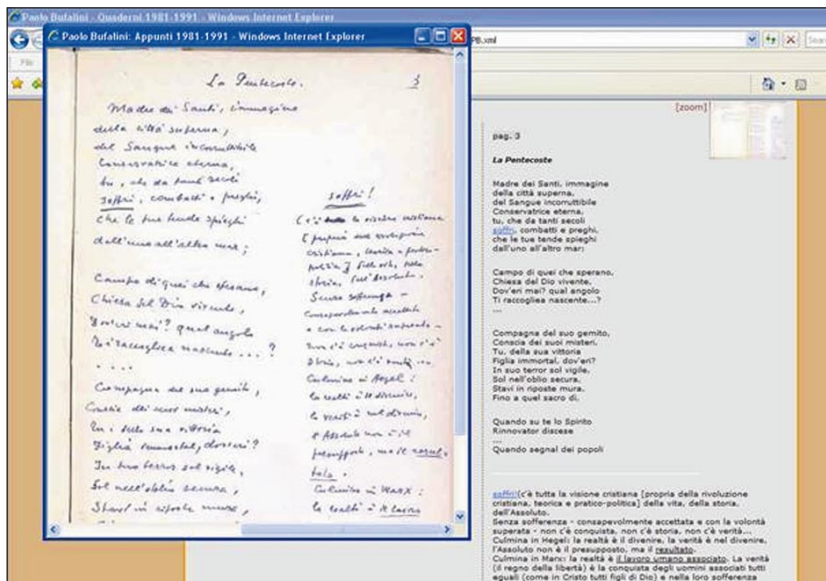 Paolo Bufalini - Quaderni 1981-1991 - Windows Internet Explorer
Paolo Bufalini: Appunti 1981-1991 - Windows Internet Explorer
PB.xml
File
La Pentecoste.
3
Madre dei Santi, immagine
della città superna,
del Sangue incorruttibile
Conservatrice eterna,
tu, che da tanti secoli
soffri, combatti e preghi,
che le tue tende spieghi
dall'uno all'altro mar;
Campo di quei che sperano,
Chiesa del Dio vivente,
Dov'eri mai? qual angolo
Ti raccogliea nascente ... ?
....
Compagna del suo gemito,
Conscia dei suoi misteri,
Tu, della sua vittoria
Figlia immortal, dov'eri?
In tuo terror sol vigile,
Sol nell'oblio secura,
Stavi in riposte mura,
soffri!
(c'è tutta la visione cristiana
[propria della rivoluzione
cristiana, teorica e pratico-
politica] della vita, della
storia, dell'Assoluto.
Senza sofferenza -
consapevolmente accettata
e con la volontà superata -
non c'è conquista, non c'è
storia, non c'è verità ...
Culmina in Hegel:
la realtà è il divenire,
la verità è nel divenire,
l'Assoluto non è il
presupposto, ma il resul-
tato.
Culmina in Marx:
la realtà è il lavoro
[zoom]
pag. 3
La Pentecoste
Madre dei Santi, immagine
della città superna,
del Sangue incorruttibile
Conservatrice eterna,
tu, che da tanti secoli
soffri, combatti e preghi,
che le tue tende spieghi
dall'uno all'altro mar:
Campo di quei che sperano,
Chiesa del Dio vivente,
Dov'eri mai? qual angolo
Ti raccogliea nascente...?
...
Compagna del suo gemito,
Conscia dei suoi misteri,
Tu, della sua vittoria
Figlia immortal, dov'eri?
In suo terror sol vigile,
Sol nell'oblio secura,
Stavi in riposte mura,
Fino a quel sacro dì,
Quando su te lo Spirito
Rinnovator discese
...
Quando segnal dei popoli
soffri!(c'è tutta la visione cristiana [propria della rivoluzione
cristiana, teorica e pratico-politica] della vita, della storia,
dell'Assoluto.
Senza sofferenza - consapevolmente accettata e con la volontà
superata - non c'è conquista, non c'è storia, non c'è verità...
Culmina in Hegel: la realtà è il divenire, la verità è nel divenire,
l'Assoluto non è il presupposto, ma il resultato.
Culmina in Marx: la realtà è il lavoro umano associato. La verità
(il regno della libertà) è la conquista degli uomini associati tutti
eguali (come in Cristo tutti figli di Dio) e nella loro sofferenza